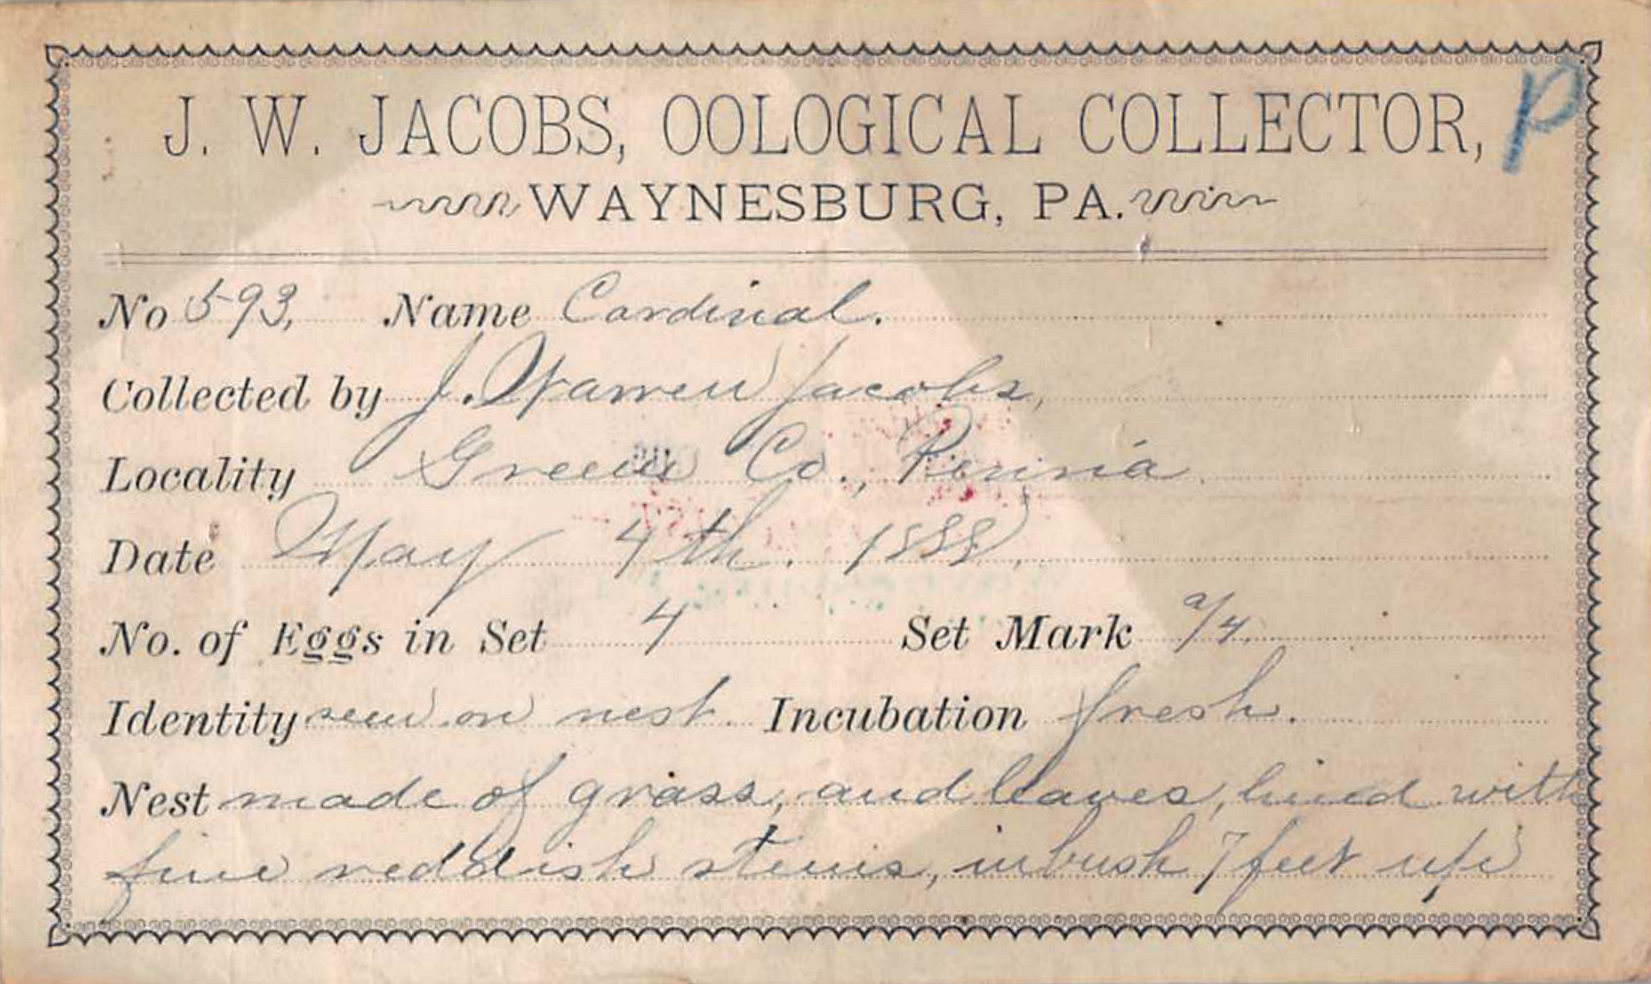 J. W. JACOBS, OOLOGICAL COLLECTOR, P
WAYNESBURG, PA.
No 593, Name Cardinal.
Collected by J. Warren Jacobs,
Locality Greene Co., Penna.
Date May 4th. 1888.
No. of Eggs in Set 4 Set Mark a/4.
Identity seen on nest. Incubation fresh.
Nest made of grass, and leaves, lined with
fine reddish stems, in bush 7 feet up